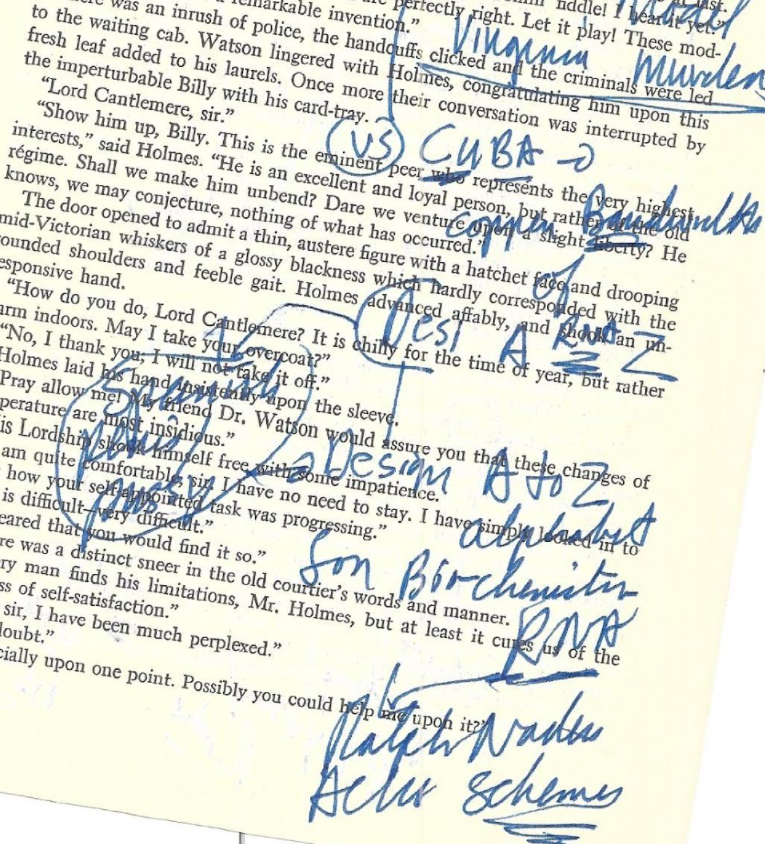 last.
fiddle! I heard it yet."
perfectly right. Let it play! These mod-
remarkable invention."
ere was an inrush of police, the handcuffs clicked and the criminals were led
to the waiting cab. Watson lingered with Holmes, congratulating him upon this
fresh leaf added to his laurels. Once more their conversation was interrupted by
the imperturbable Billy with his card-tray.
"Lord Cantlemere, sir."
"Show him up, Billy. This is the eminent peer who represents the very highest
interests," said Holmes. "He is an excellent and loyal person, but rather of the old
régime. Shall we make him unbend? Dare we venture upon a slight liberty? He
knows, we may conjecture, nothing of what has occurred."
The door opened to admit a thin, austere figure with a hatchet face and drooping
mid-Victorian whiskers of a glossy blackness which hardly corresponded with the
ounded shoulders and feeble gait. Holmes advanced affably, and shook an un-
esponsive hand.
"How do you do, Lord Cantlemere? It is chilly for the time of year, but rather
arm indoors. May I take your overcoat?"
"No, I thank you; I will not take it off."
Holmes laid his hand insistently upon the sleeve.
Pray allow me! My friend Dr. Watson would assure you that these changes of
perature are most insidious."
is Lordship shook himself free with some impatience.
am quite comfortable, sir. I have no need to stay. I have simply looked in to
how your self-appointed task was progressing."
is difficult—very difficult."
eared that you would find it so."
re was a distinct sneer in the old courtier's words and manner.
ry man finds his limitations, Mr. Holmes, but at least it cures us of the
ss of self-satisfaction."
sir, I have been much perplexed."
doubt."
cially upon one point. Possibly you could help me upon it?"
Virginia Murder
US CUBA
copper
of
Desi A RNAZ
Spanish
Design A to Z
alphabet
Son Biochemistry
RNA
Ralph Nader
Schemes